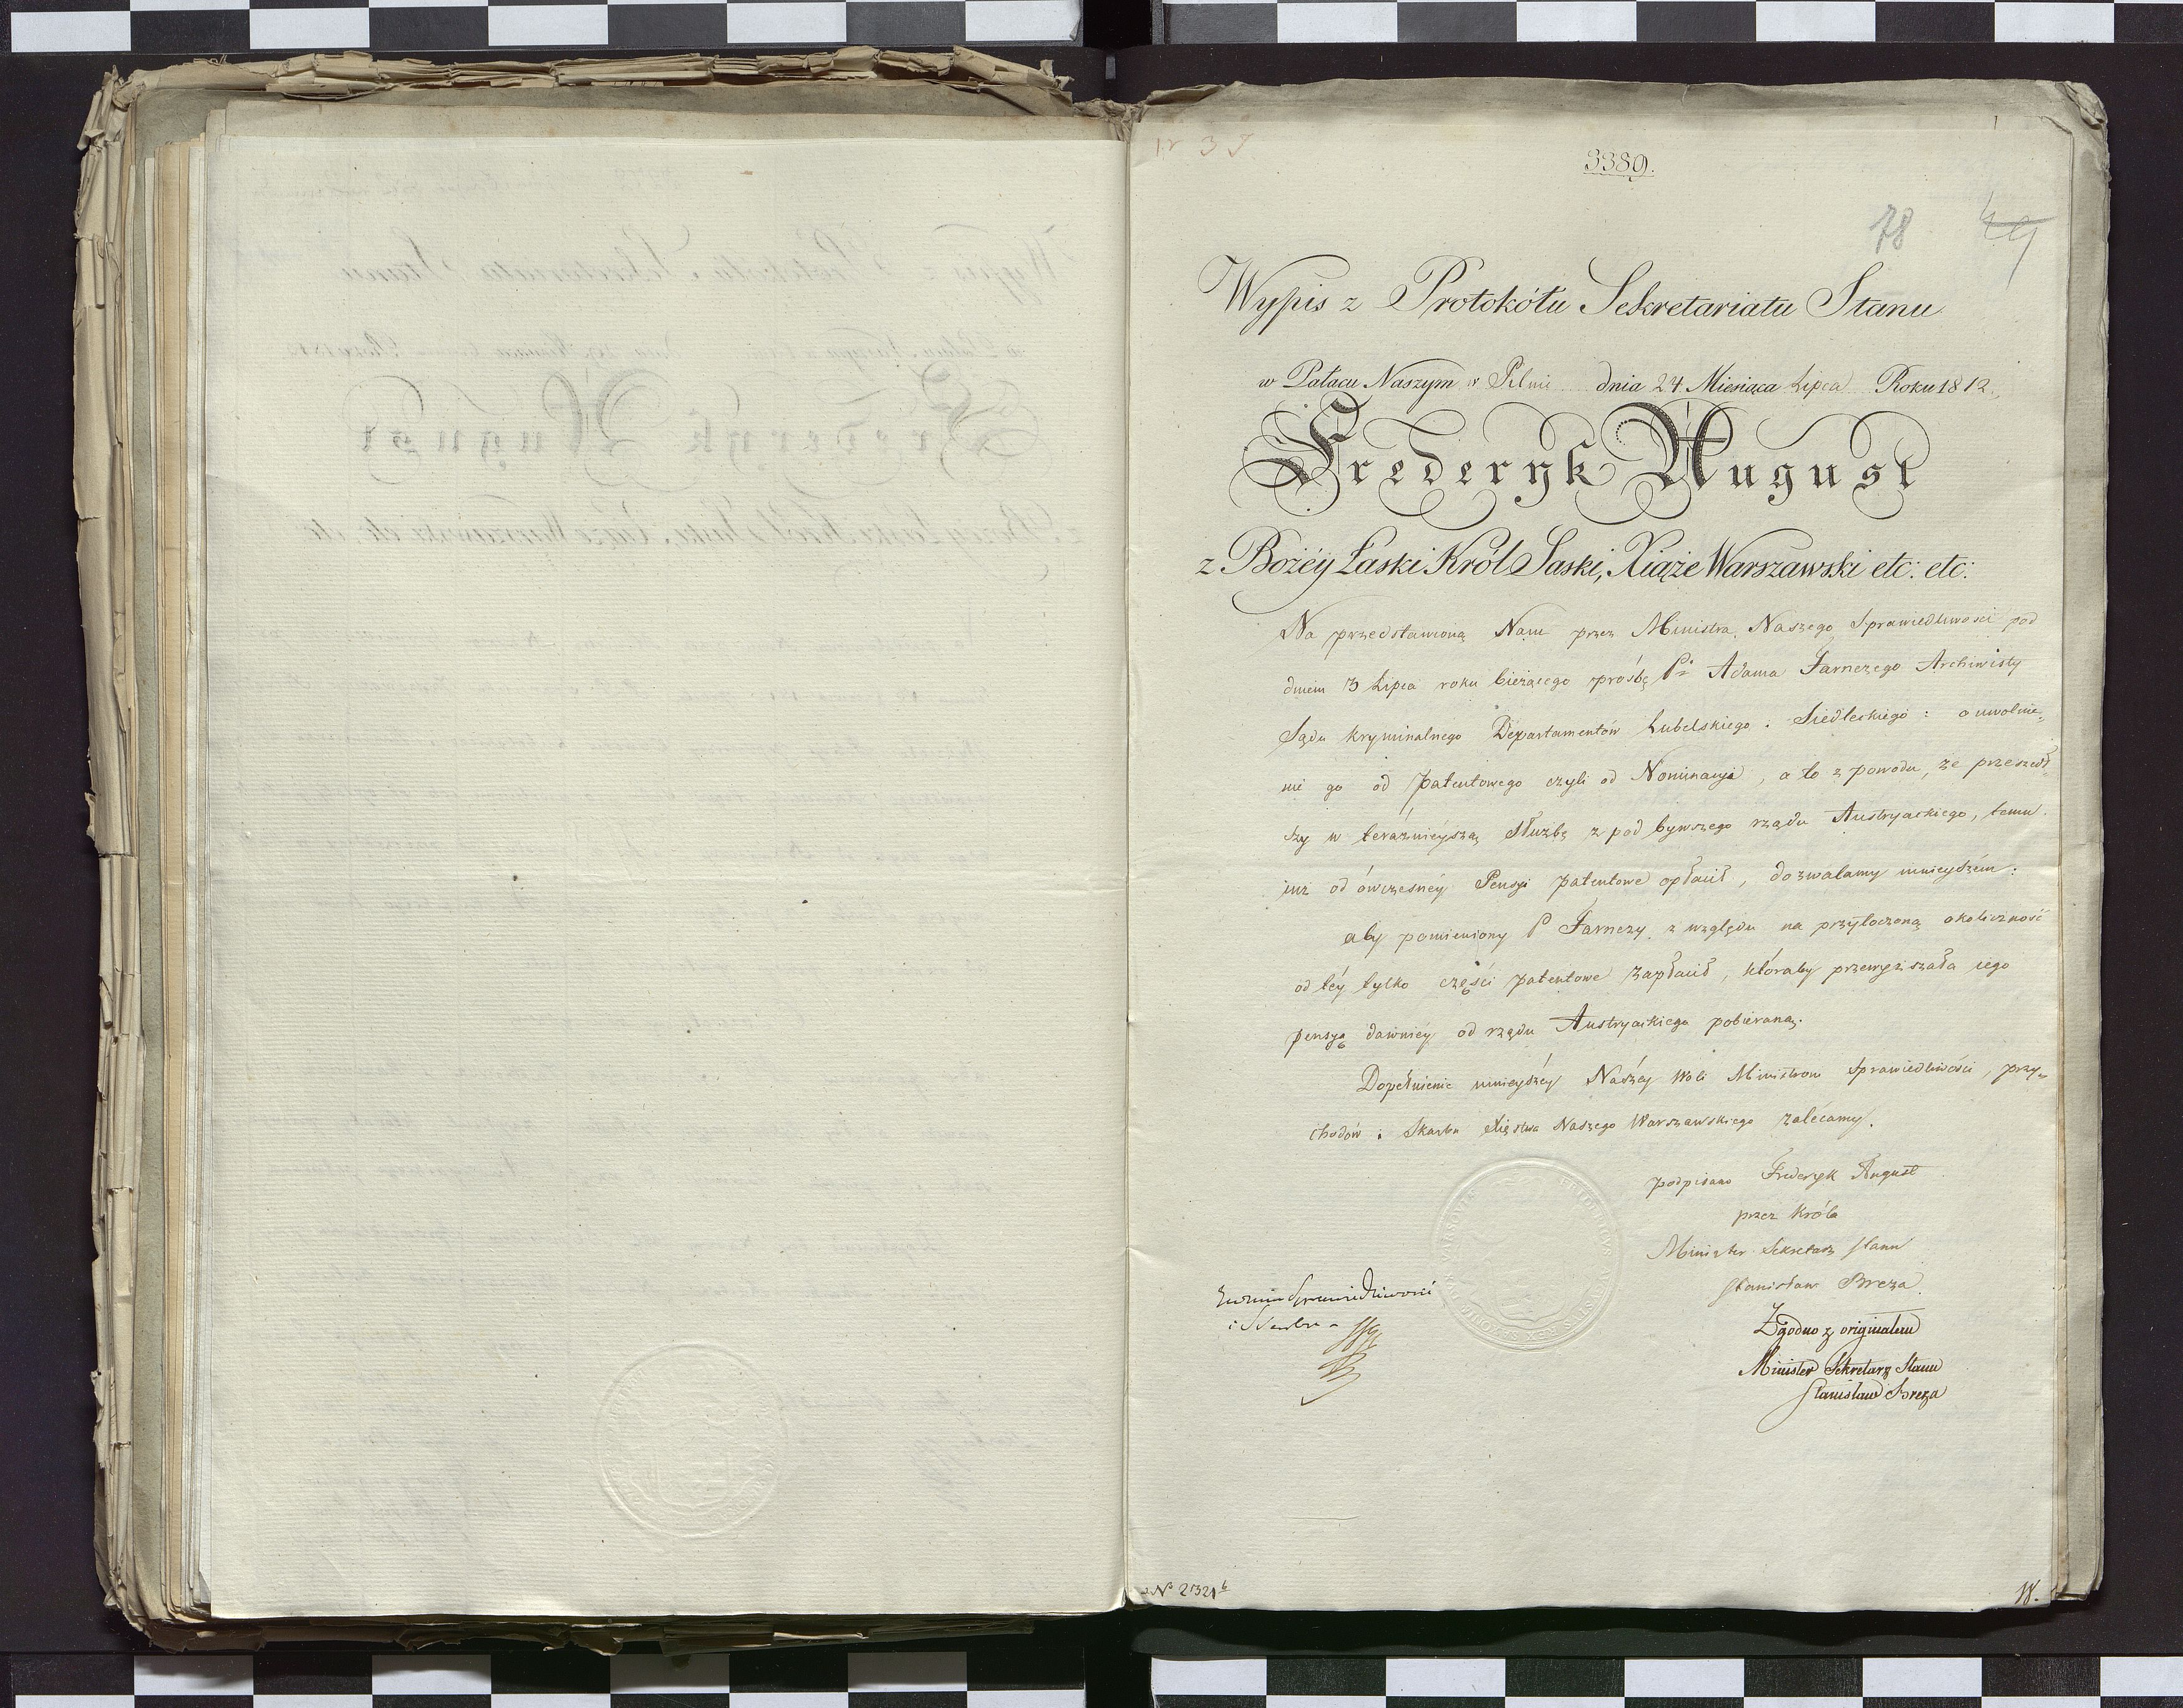 3389.
78
49
Wypis z Protokółu Sekretariatu Stanu
w Pałacu Naszym w Pilnic dnia 24 Miesiąca Lipca Roku 1812.
Frederyk August
z Bożéy Łaski Król Saski, Xiąże Warszawski etc: etc:
Na przedstawioną Nam przez Ministra Naszego Sprawiedliwości pod
dniem 3 Lipca roku bieżącego prośbę P. Adama Farnezego Archiwisty
Sądu Kryminalnego Departamentów Lubelskiego i Siedleckiego: o uwolnie-
nie go od patentowego czyli od Nominacyi, a to z powodu, że przeszedł-
szy w teraźnieyszą służbę z pod bywszego rządu Austryackiego, temu
iuż od ówczesnéy Pensyi patentowe opłacił, dozwalamy ninieyszém:
aby pomieniony P Farnezy z względu na przytoczoną okoliczność
od téy tylko części patentowe zapłacił, któraby przewyższała iego
pensyą dawniéy od rządu Austryackiego pobieraną.
Dopełnienie ninieyszéy Naszéy Woli Ministrom Sprawiedliwości, przy-
chodów i Skarbu Xięstwa Naszego Warszawskiego zalécamy.
podpisano Frederyk August
przez Króla
Minister Sekretarz Stanu
Stanisław Breza.
Zgodno z originałem
Minister Sekretarz Stanu
Stanisław Breza
Sprawiedliwości
i Skarbu